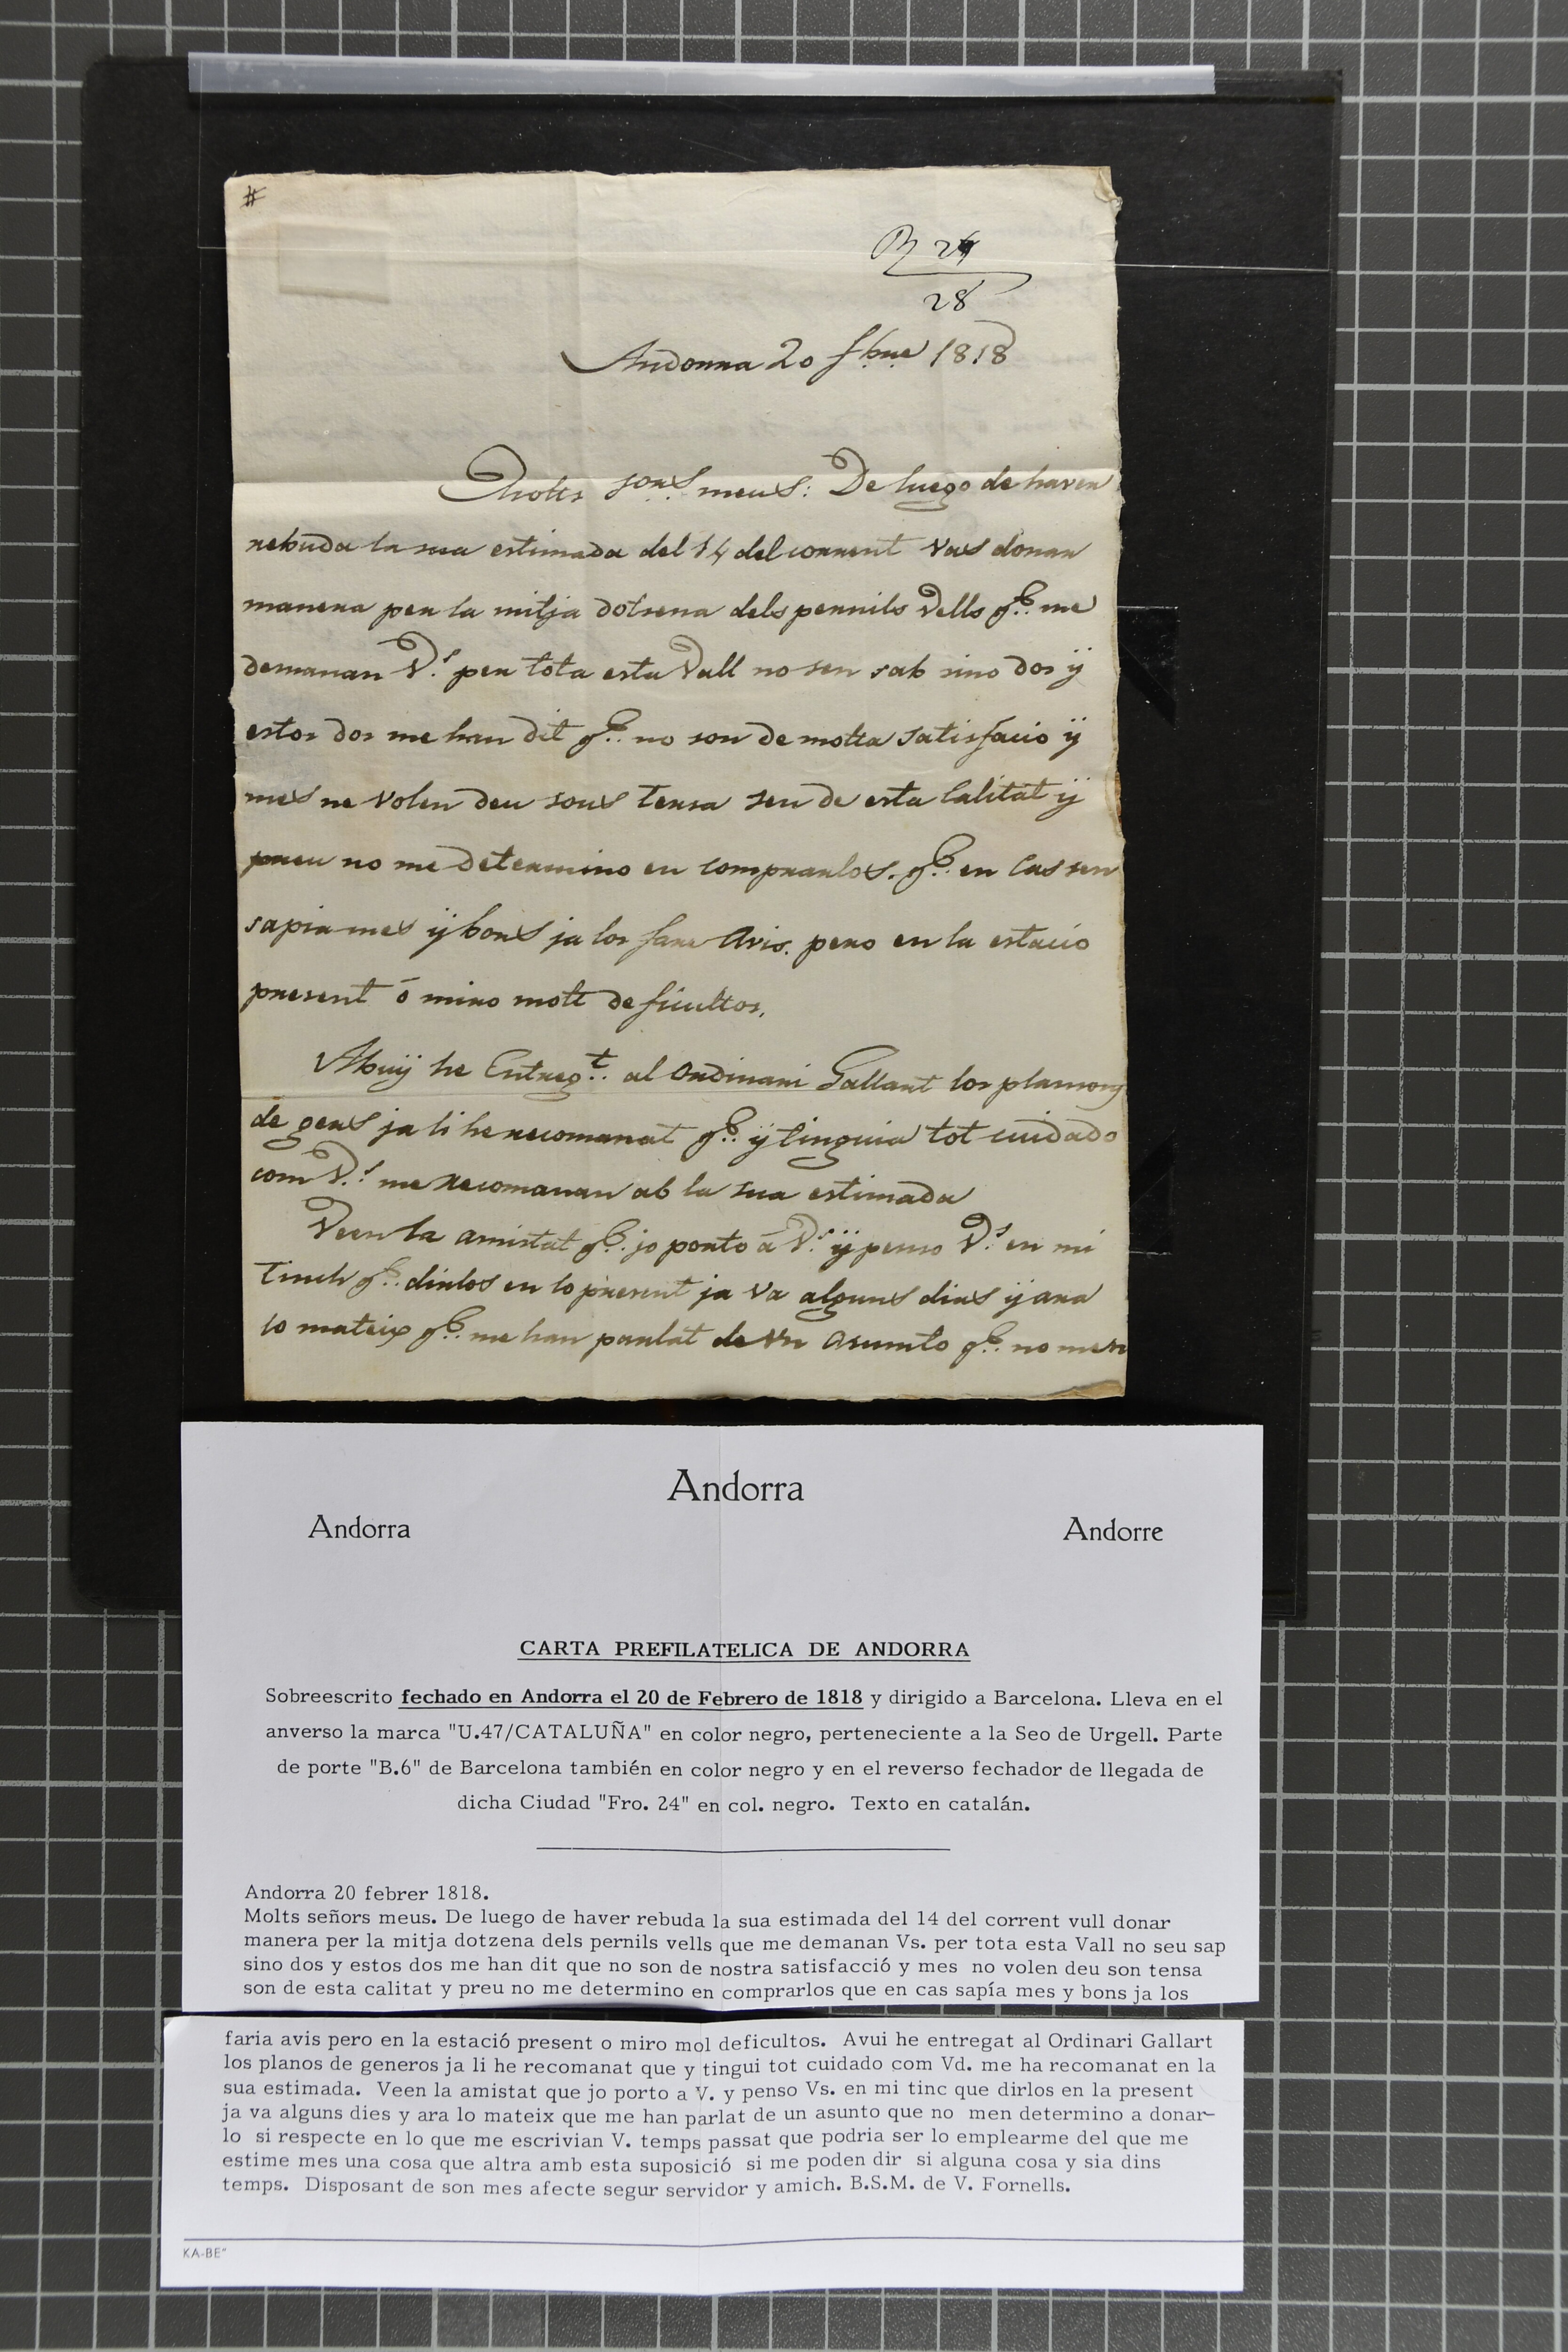 #
R 24
28
Andorra 20 fbre 1818
Molts sors meus: De luego de haver
rebuda la sua estimada del 14 del corrent vas donar
manera per la mitja dotsena dels pernils Vells qe. me
demanan Vs. per tota esta Vall no sen sab sino dos ÿ
estos dos me han dit qe. no son de molta satisfacio ÿ
mes ne volen deu sous tersa sen de esta Calitat ÿ
preu no me determino en comprarlos. qe. en Cas sen
sapia mes ÿ bons ja los fare Avis. pero en la estacio
present ó miro molt deficultos.
Abuÿ he Entregt. al Ordinari Gallart los
de gers ja li he recomanat qe. ÿ tinguia tot cuidado
com Vs. me recomanan ab la sua estimada
Veen la amistat qe. jo porto á Vs. ÿ penso Vs. en mi
Tinch qe. dirlos en lo present ja va alguns dias ÿ ara
lo mateix qe. me han parlat de Un Asumto qe. no men
Andorra
Andorra
Andorre
CARTA PREFILATELICA DE ANDORRA
Sobreescrito fechado en Andorra el 20 de Febrero de 1818 y dirigido a Barcelona. Lleva en el
anverso la marca "U.47/CATALUÑA" en color negro, perteneciente a la Seo de Urgell. Parte
de porte "B.6" de Barcelona también en color negro y en el reverso fechador de llegada de
dicha Ciudad "Fro. 24" en col. negro. Texto en catalán.
Andorra 20 febrer 1818.
Molts señors meus. De luego de haver rebuda la sua estimada del 14 del corrent vull donar
manera per la mitja dotzena dels pernils vells que me demanan Vs. per tota esta Vall no seu sap
sino dos y estos dos me han dit que no son de nostra satisfacció y mes no volen deu son tensa
son de esta calitat y preu no me determino en comprarlos que en cas sapía mes y bons ja los
faria avis pero en la estació present o miro mol deficultos. Avui he entregat al Ordinari Gallart
los planos de generos ja li he recomanat que y tingui tot cuidado com Vd. me ha recomanat en la
sua estimada. Veen la amistat que jo porto a V. y penso Vs. en mi tinc que dirlos en la present
ja va alguns dies y ara lo mateix que me han parlat de un asunto que no men determino a donar-
lo si respecte en lo que me escrivian V. temps passat que podria ser lo emplearme del que me
estime mes una cosa que altra amb esta suposició si me poden dir si alguna cosa y sia dins
temps. Disposant de son mes afecte segur servidor y amich. B.S.M. de V. Fornells.
KA-BE"